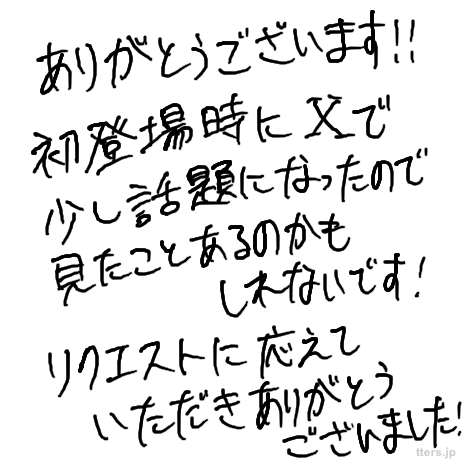 ありがとうございます!!
初登場時にXで
少し話題になったので
見たことあるのかも
しれないです!
リクエストに応えて
いただきありがとう
ございました!
tters.jp